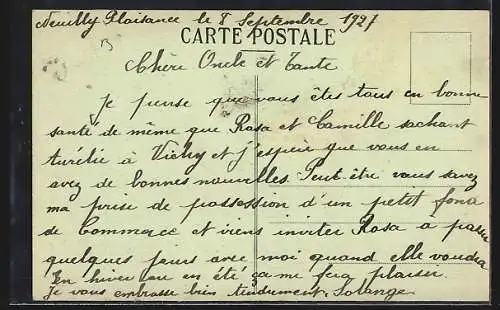 Neuilly Plaisance le 8 Septembre 1927
CARTE POSTALE
Chère Oncle et Tante
Je pense que vous êtes tous en bonne
santé de même que Rosa et Camille sachant
Aurélie à Vichy et J'espère que vous en
avez de bonnes nouvelles. Peut-être vous savez
ma prise de possession d'un petit fond
de Commerce et viens inviter Rosa a passer
quelques jours avec moi quand elle voudra
En hiver ou en été ça me fera plaisir.
Je vous embrasse bien tendrement. Solange